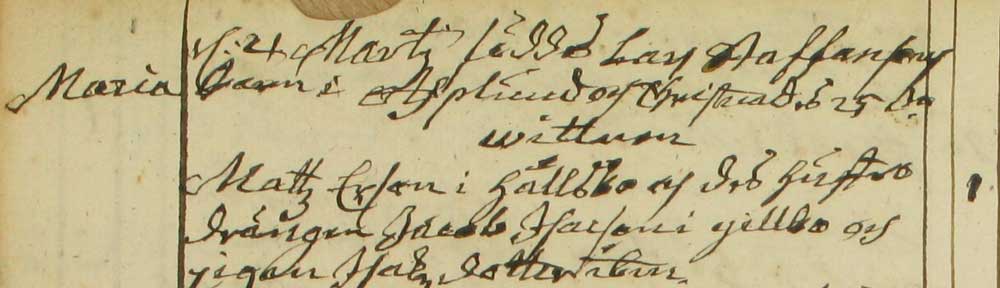 d. 24 Martz föddes Lars Staffanssons
Maria barn i Asplund och Christnades 25 do
wittnen
Mattz Ersson i Hällsbo och des Hustro
drängen Jacob Isacson i gillbo och
pigan Isacz dotter ibm.